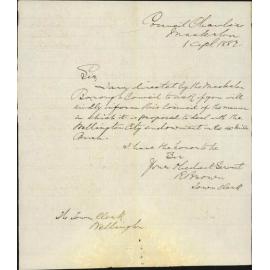 Council Chambers
Masterton
1 Sept 1883
Sir
I am directed by the Masterton
Borough Council to ask if you will
kindly inform this Council of the manner
in which it is proposed to deal with the
Wellington City endowment in the
I have the honor to be
Sir
Your Obedient Servant
R Brown
Town Clerk
The Town Clerk
Wellington